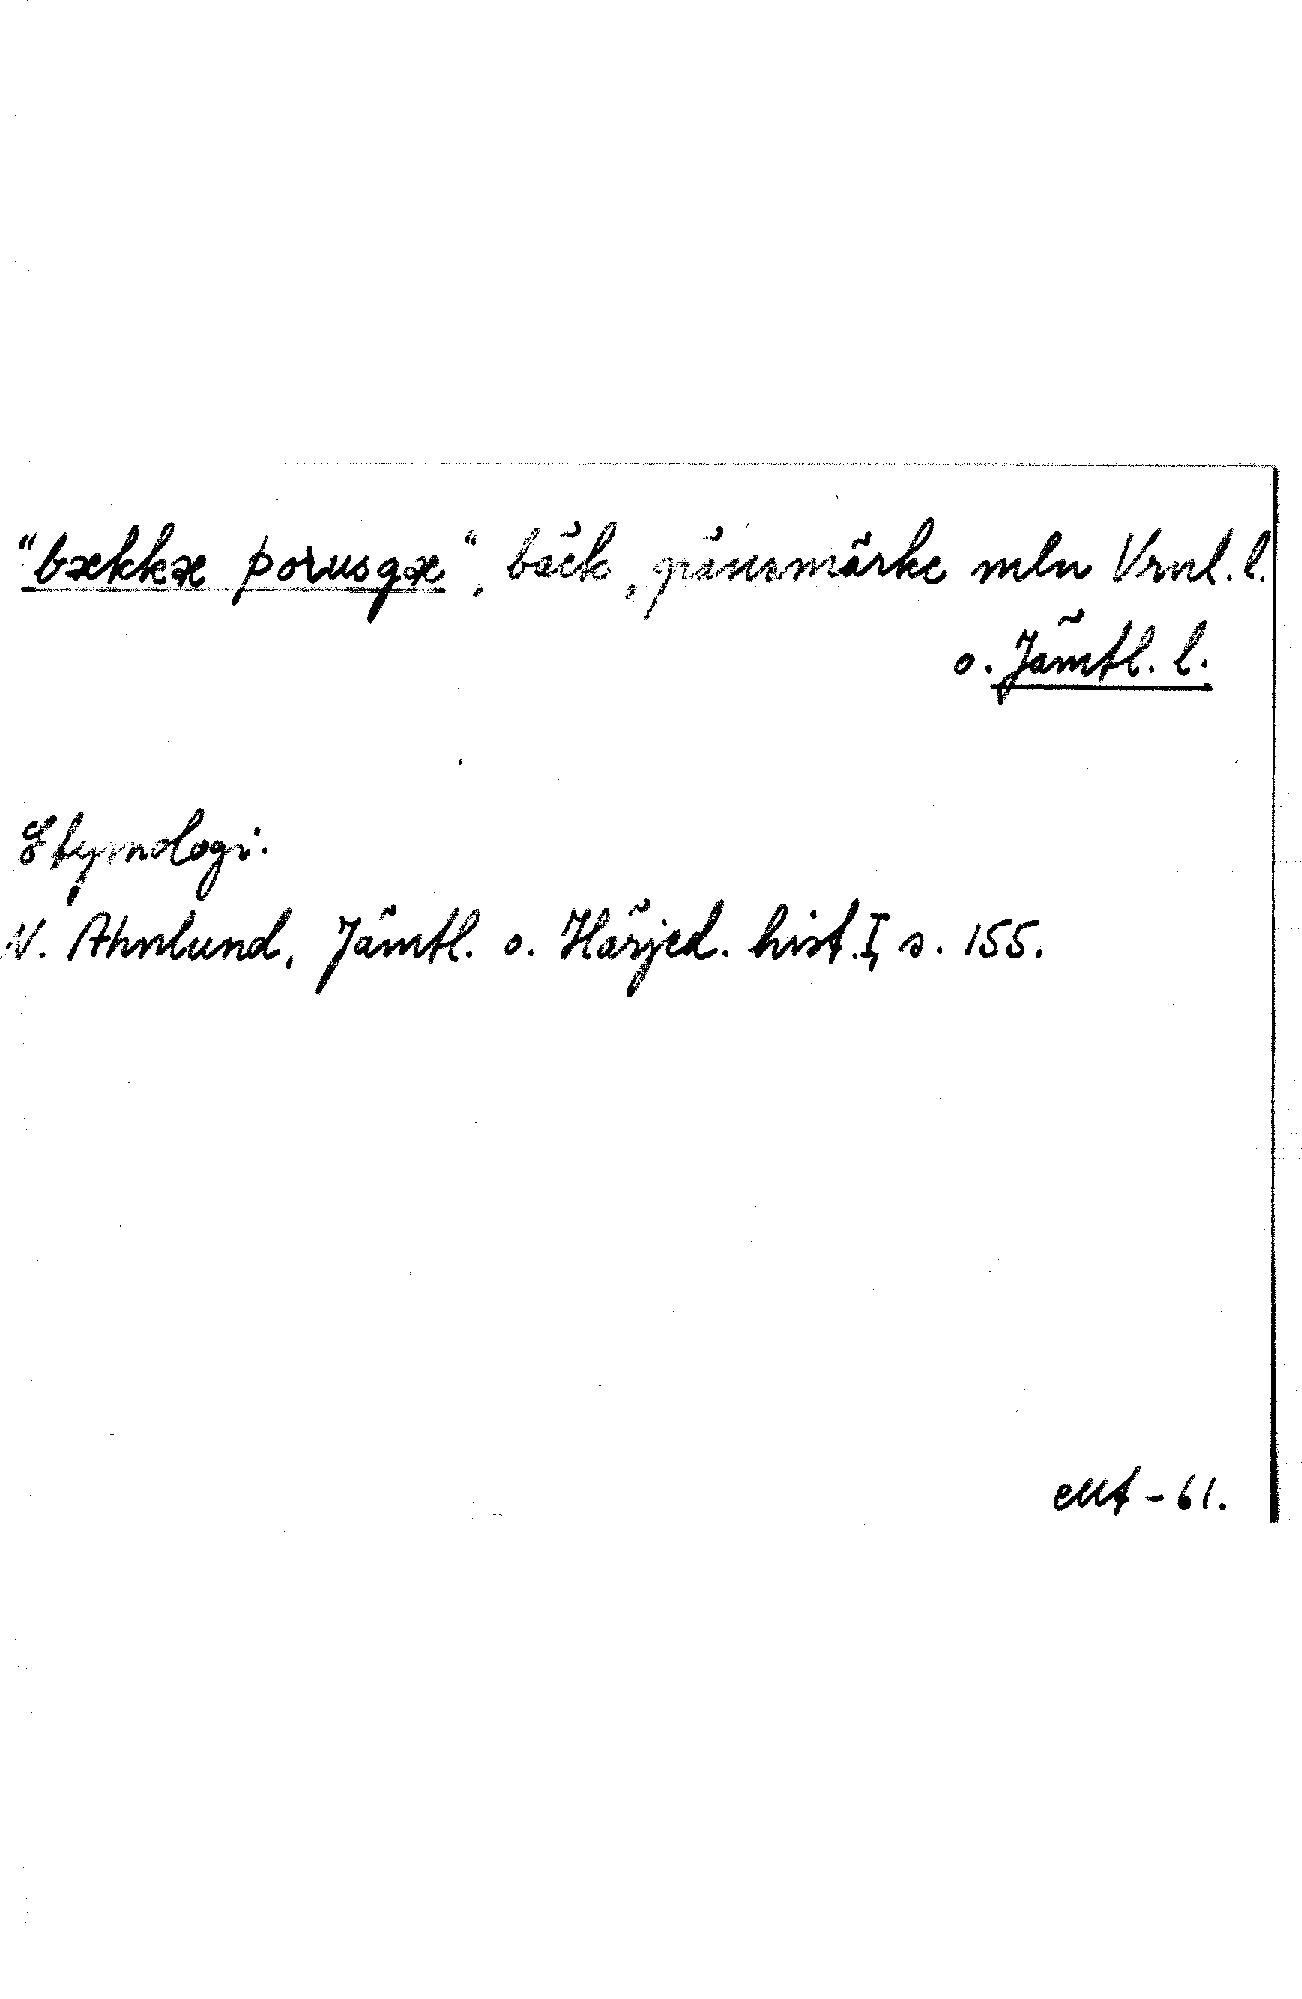 "bækkæ þorusgæ", bäck, gränsmärke mln Vrml. l.
o. Jämtl. l.
Etymologi.
N. Ahnlund, Jämtl. o. Härjed. hist. I, s. 155.
-61.